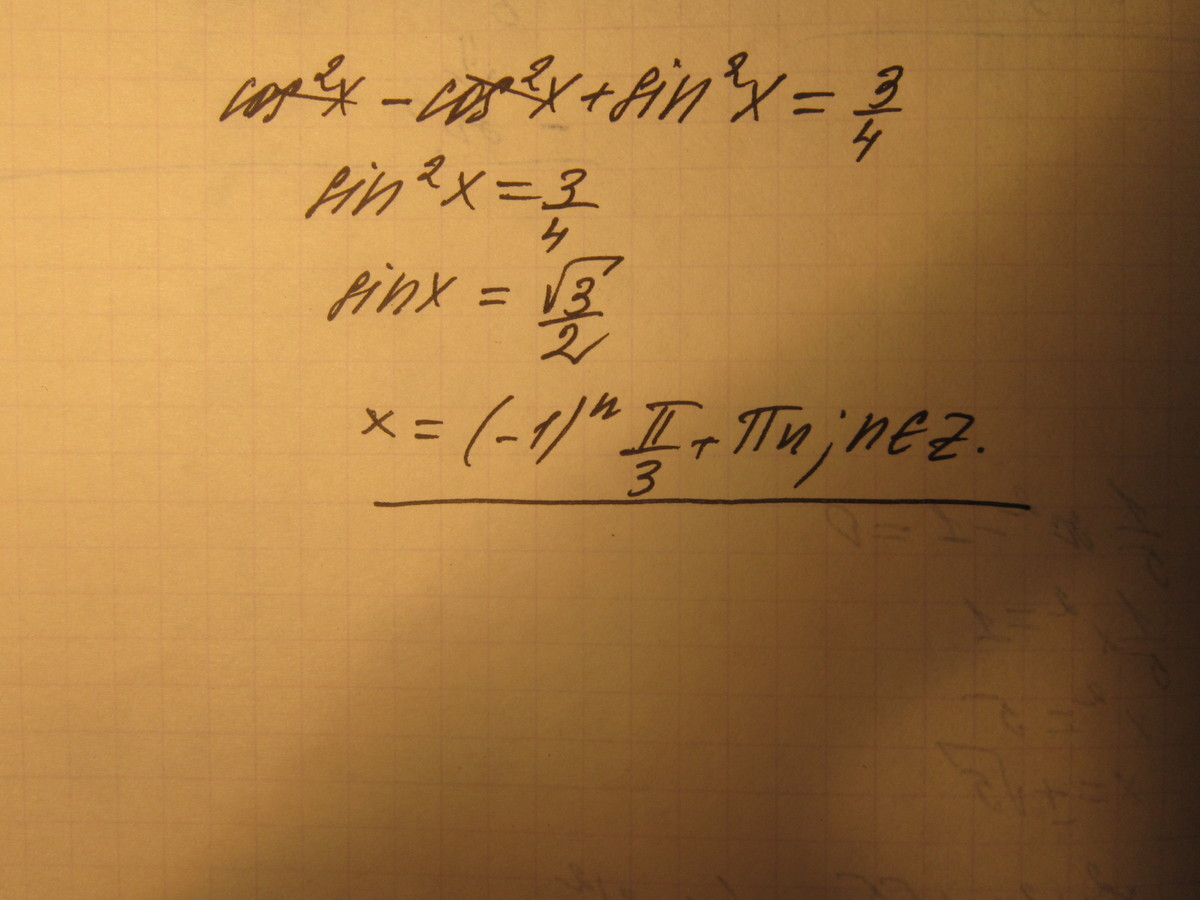 cos²x - cos²x + sin²x = 3/4
sin²x = 3/4
sinx = √3/2
x = (-1)ⁿ π/3 + πn; n∈Z.